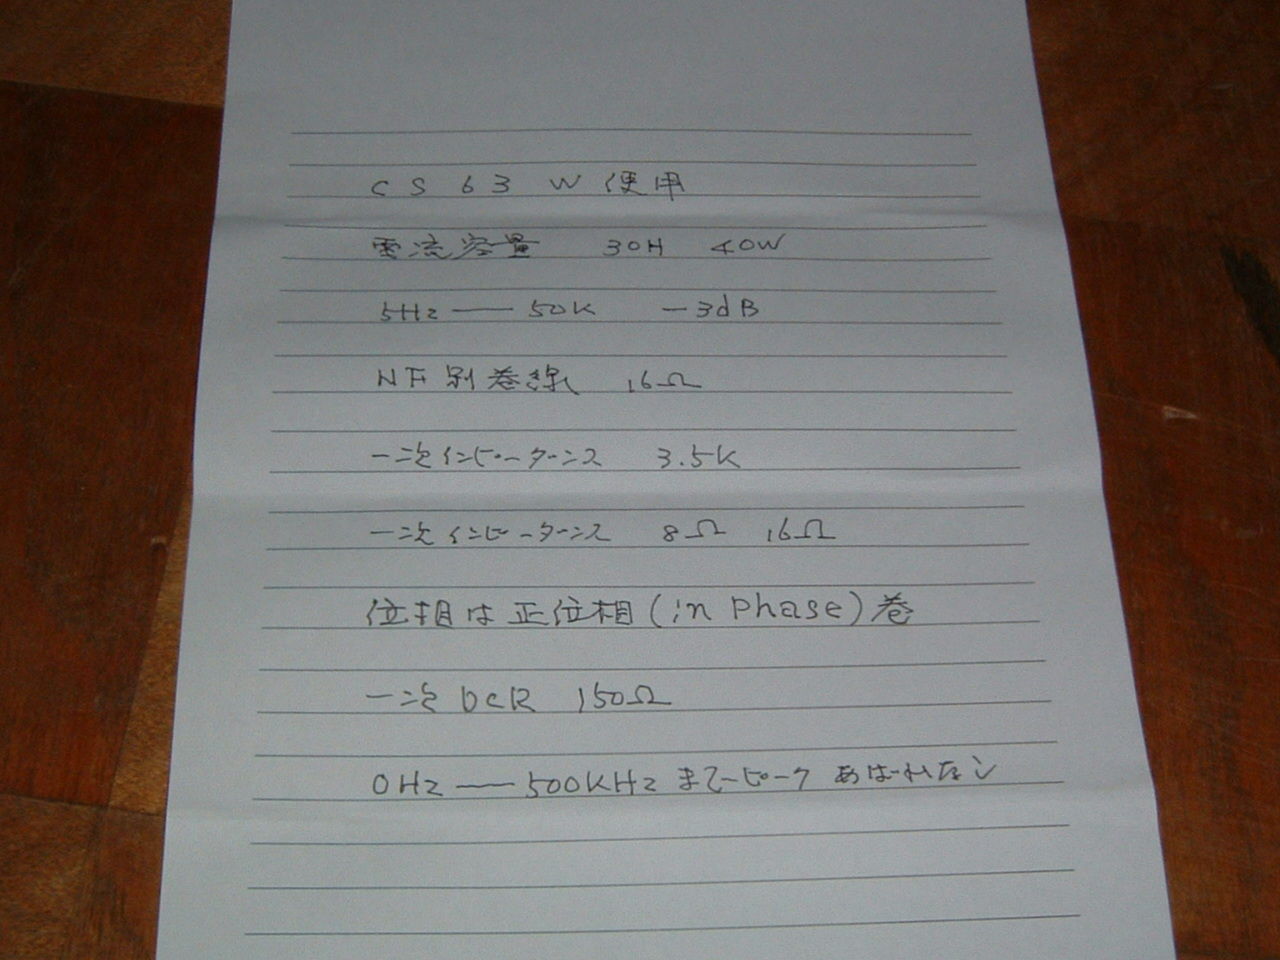 CS63W使用
電流容量 30H 40W
5Hz — 50K -3dB
NF別巻線 16Ω
一次インピーダンス 3.5K
一次インピーダンス 8Ω 16Ω
位相は正位相(in phase)巻
一次DCR 150Ω
0Hz — 500KHzまでピークあばれなし